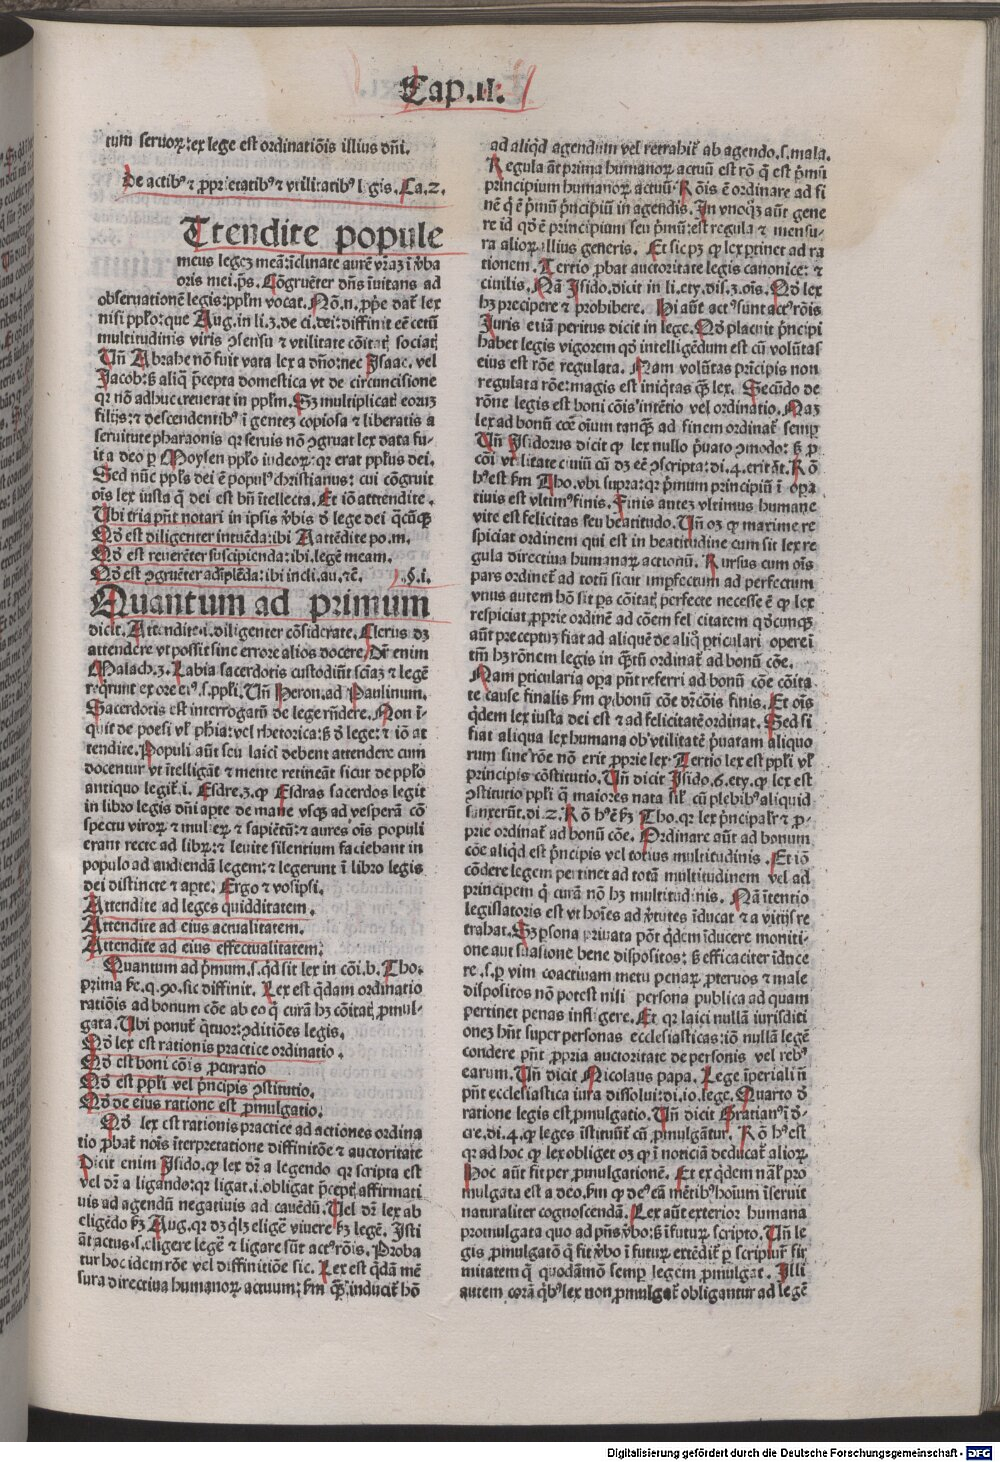 Cap.II.
tum seruoꝝ:ex lege est ordinatiõis illius dñi.
De actibꝰ ⁊ ꝓprietatibꝰ ⁊ vtilitatibꝰ l gis. Ca.2.
Ttendite popule
meus legeʒ meã:ĩclinate aurẽ vr̃aʒ ĩ v̾ba
oris mei.ps. Cõgruẽter dñs ĩuitans ad
obseruationẽ legis:ppl̃m vocat. Nõ.n.ꝓpe dat̃ lex
nisi ppl̃o:que Aug.in li.3.de ci.dei:diffinit eẽ cetũ
multitudinis viris ꝯsensu ⁊ vtilitate cõitat̃ sociat̃
Uñ Abrahe nõ fuit data lex a dño:nec Isaac. vel
Jacob:ẜ aliq̃ p̃cepta domestica vt de circuncisione
qꝛ nõ adhuc creuerat in ppl̃m. Sʒ multiplicat̃ eorũ
filijs:⁊ descendentibꝰ ĩ genteʒ copiosa ⁊ liberatis a
seruitute pharaonis qꝛ seruis nõ ꝯgruat lex data fu-
it a deo ꝑ Moysen ppl̃o iudeoꝝ:qꝛ erat ppl̃us dei.
Sed nũc ppl̃s dei ẽ populꝰ christianus: cui cõgruit
oĩs lex iusta q̃ dei est bñ ĩtellecta. Et iõ atttendite.
Ubi tria pñt notari in ipsis v̾bis d̾ lege dei q̃cũqꝫ
Qd̾ est diligenter intuẽda:ibi Aattẽdite po.m.
Qd̾ est reuerẽter suscipienda:ibi.legẽ meam.
Qd̾ est ꝯgruẽter adĩplẽda:ibi incli.au.⁊c̃. §.i.
Quantum ad primum
dicit. Attendite.i.diligenter cõsiderate. Clerus dʒ
attendere vt possit sine errore alios docere. Dr̃ enim
Malach.3. Labia sacerdotis custodiũt sciãʒ ⁊ legẽ
reqrunt ex ore eiꝰ.s.ppl̃i. Uñ Heron.ad Paulinum.
Sacerdotis est interrogatũ de lege rñdere. Non ĩ-
quit de poesi vl̃ phĩa:vel rhetorica:ẜ d̾ lege:⁊ iõ at
tendite. Populi aũt seu laici debent attendere cum
docentur vt ĩtelligãt ⁊ mente retineãt sicut de ppl̃o
antiquo legit̃.i. Esdre.3.ꝙ Esdras sacerdos legit
in libro legis dñi apte de mane vsqꝫ ad vesperã cõ
spectu viroꝝ ⁊ mulieꝝ ⁊ sapiẽtũ:⁊ aures oĩs populi
erant recte ad libꝝ:⁊ leuite silentium faciebant in
populo ad audiendã legem:⁊ legerunt ĩ libro legis
dei distincte ⁊ apte. Ergo ⁊ vosipsi.
Attendite ad leges quidditatem.
Attendite ad eius actualitatem.
Attendite ad eius effectualitatem.
Quantum ad p̃mum.s.qd̾ sit lex in cõi.b. Tho.
prima sc̃e.q.90.sic diffinit. Lex est q̃dam ordinatio
ratiõis ad bonum cõe ab eo q̃ curã hʒ cõitat̃ ꝓmul-
gata. Ubi ponut̃ q̃tuor:ꝯditiões legis.
Qd̾ lex est rationis practice ordinatio.
Qd̾ est boni cõis ꝓcuratio
Qd̾ est ppl̃i vel p̃ncipis ꝯstitutio.
Qd̾ de eius ratione est ꝓmulgatio.
Qd̾ lex est rationis practice ad actiones ordina
tio ꝓbat̃ noĩs ĩterpretatione diffinitõe ⁊ auctoritate
Dicit enim Isido.ꝙ lex dr̃ a legendo qꝛ scripta est
vel dr̃ a ligando:qꝛ ligat.i.obligat p̃cept̃ affirmati
uis ad agendũ negatiuis ad cauẽdũ. Uel dr̃ lex ab
eligẽdo ẜʒ Aug.qꝛ dʒ q̃lʒ eligẽ viuere ẜʒ legẽ. Isti
ãt actus.s.eligere legẽ ⁊ ligare sũt actꝰ rõis. Proba
tur hoc idem rõe vel diffinitiõe sic. Lex est q̃dã mẽ
sura directiua humanoꝝ actuum:ẜm quã inducit̃ hõ
ad aliqd̾ agendum vel retrahit̃ ab agendo.s.mala.
Regula ãt prima humanoꝝ actuũ est rõ q̃ est p̃mũ
principium humanoꝝ actuũ. Rõis ẽ ordinare ad fi
nẽ q̃ ẽ p̃mũ p̃ncipiũ in agendis. In vnoq̃ʒ aũt gene
re id qd̾ ẽ principium seu p̃mũ:est regula ⁊ mensu-
ra alioꝝ illius generis. Et sic pʒ ꝙ lex ꝑtinet ad ra
tionem. Tertio ꝓbat auctoritate legis canonice:⁊
ciuilis. Nã Isido.dicit in li.ety.dis.3.oĩs. Qd̾ lex
hʒ precipere ⁊ prohibere. Hi aũt actꝰ sunt actꝰ rõis
Iuris etiã peritus dicit in lege. Qd̾ placuit p̃ncipi
habet legis vigorem qd̾ intelligẽdum est cũ volũtas
eius est rõe regulata. Nam volũtas prĩcipis non
regulata rõe:magis est iniq̃tas q̃ lex. Secũdo de
rõne legis est boni cõis ĩtẽtio vel ordinatio. Naʒ
lex ad bonũ cõe oĩum tanqꝫ ad finem ordinat̃ semꝑ
Uñ Isidorus dicit ꝙ lex nullo p̃uato ꝯmodo:ẜ ꝓ
cõi vtilitate ciuiũ cũ dʒ eẽ ꝯscripta:di.4.erit ãt. Rõ
hꝰ est ẜm Tho.vbi supra:qꝛ p̃mum principiũ ĩ opa
tiuis est vltimꝰ finis. Finis auteʒ vltimus humane
vite est felicitas seu beatitudo. Uñ oʒ ꝙ maxime re
spiciat ordinem qui est in beatitudine cum sit lex re
gula directiua humanaꝝ actionũ. Rursus cum oĩs
pars ordinet̃ ad totũ sicut imꝑfectum ad perfectum
vnus autem hõ sit ps cõitat̃ perfecte necesse ẽ ꝙ lex
respiciat ꝓprie ordinẽ ad cõem felicitatem qd̾cunqꝫ
aũt preceptuʒ fiat ad aliquẽ de aliq̃ ꝑticulari opere ĩ
tm̃ hʒ rõnem legis in quãtũ ordinat̃ ad bonũ cõe.
Nam ꝑticularia opa pñt referri ad bonũ cõe cõita
te cause finalis ẜm ꝙ bonũ cõe dr̃ cõis finis. Et oĩs
q̃dem lex iusta dei est ⁊ ad felicitatẽ ordinat̃. Sed si
fiat aliqua lex humana ob vtilitatẽ p̃uatam aliquo
rum sine rõe nõ erit ꝓprie lex. Tertio lex est ppl̃i vl̃
principis cõstitutio. Uñ dicit Isido.6.ety.ꝙ lex est
ꝯstitutio ppl̃i q̃ maiores nata sil̃ cũ plebibꝰ aliquid
sanxerũt.di.2. Rõ hꝰ ẽ ẜʒ Tho.qꝛ lex p̃ncipalr̃ ⁊ ꝓ-
prie ordinat̃ ad bonũ cõe. Ordinare aũt ad bonum
cõe aliqd̾ est p̃ncipis vel totius multitudinis. Et iõ
cõdere legem pertinet ad totã multitudinem vel ad
principem q̃ curã nõ hʒ multitudinis. Nã ĩtentio
legislatoris est vt hoĩes ad v̾tutes ĩducat ⁊ a vitijs re
trahat. Sʒ ꝑsona priuata põt q̃dem ĩducere moniti-
one aut suasione bene dispositos:ẜ efficaciter ĩduce
re.s.ꝑ vim coactiuam metu penaꝝ ꝓteruos ⁊ male
dispositos nõ potest nisi persona publica ad quam
pertinet penas infligere. Et qꝛ laici nullã iurisditi
oneʒ hñt super personas ecclesiasticas:iõ nullã legẽ
condere pñt ꝓpria auctoritate de personis vel rebꝰ
earum. Uñ dicit Nicolaus papa. Lege ĩperiali ñ
pñt ecclesiastica iura dissolui:di.10.lege. Quarto d̾
ratione legis est ꝓmulgatio. Uñ dicit Gratianꝰ ĩ d̾-
cre.di.4.ꝙ leges ĩstituũt̃ cũ ꝓmulgãtur. Rõ hꝰ est
qꝛ ad hoc ꝙ lex obliget oʒ ꝙ ĩ noticiã deducat̃ alioꝝ
Hoc aũt fit per ꝓmulgationẽ. Et ex q̃dem nãl̃ pro
mulgata est a deo.ẜm ꝙ deꝰ eã mẽtibꝰ hoĩum ĩseruit
naturaliter cognoscendã. Lex aũt exterior humana
promulgata quo ad pñs v̾bo:ẜ ĩ futuꝝ scripto. Uñ le
gis ꝓmulgatõ q̃ fit v̾bo ĩ futuꝝ extẽdit̃ ꝑ scripturã fir
mitatem q̃ quodãmõ semꝑ legem ꝓmulgat. Illi
autem corã qbꝰ lex non ꝓmulgat̃ obligantur ad legẽ
Digitalisierung gefördert durch die Deutsche Forschungsgemeinschaft - DFG